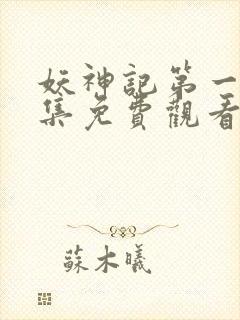 妖神記第一
集免費觀看
蘇木曦